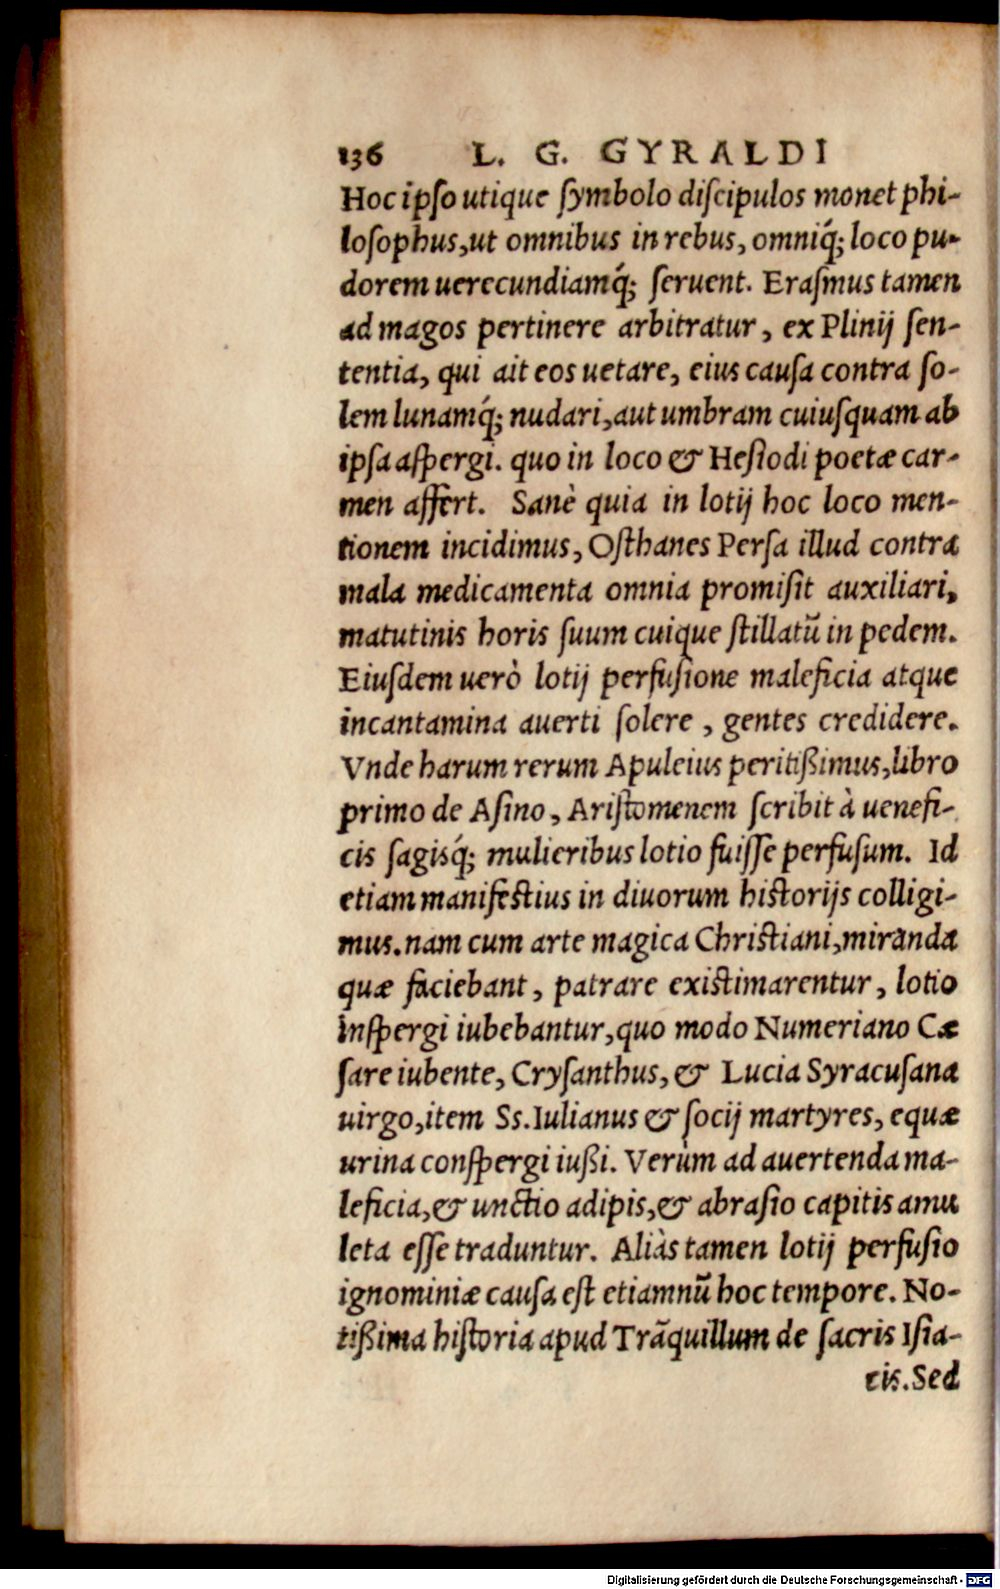 136 L. G. GYRALDI
Hoc ipſo utique ſymbolo diſcipulos monet phi-
loſophus,ut omnibus in rebus, omniq́; loco pu-
dorem uerecundiamq́; ſeruent. Eraſmus tamen
ad magos pertinere arbitratur, ex Plinij ſen-
tentia, qui ait eos uetare, eius cauſa contra ſo-
lem lunamq́; nudari,aut umbram cuiuſquam ab
ipſa aſpergi. quo in loco & Heſiodi poetæ car-
men affert. Sanè quia in lotij hoc loco men-
tionem incidimus, Oſthanes Perſa illud contra
mala medicamenta omnia promiſit auxiliari,
matutinis horis ſuum cuique ſtillatũ in pedem.
Eiuſdem uerò lotij perfuſione maleficia atque
incantamina auerti ſolere , gentes credidere.
Vnde harum rerum Apuleius peritißimus,libro
primo de Aſino, Ariſtomenem ſcribit à uenefi-
cis ſagisq́; mulieribus lotio fuiſſe perfuſum. Id
etiam manifeſtius in diuorum hiſtorijs colligi-
mus.nam cum arte magica Chriſtiani,miranda
quæ faciebant, patrare exiſtimarentur, lotio
inſpergi iubebantur,quo modo Numeriano Cæ
ſare iubente, Cryſanthus, & Lucia Syracuſana
uirgo,item Ss.Iulianus & ſocij martyres, equæ
urina conſpergi iußi. Verùm ad auertenda ma-
leficia,& unctio adipis,& abraſio capitis amu
leta eſſe traduntur. Aliàs tamen lotij perfuſio
ignominiæ cauſa eſt etiamnũ hoc tempore. No-
tißima hiſtoria apud Trãquillum de ſacris Iſia-
cis.Sed
Digitalisierung gefördert durch die Deutsche Forschungsgemeinschaft - DFG